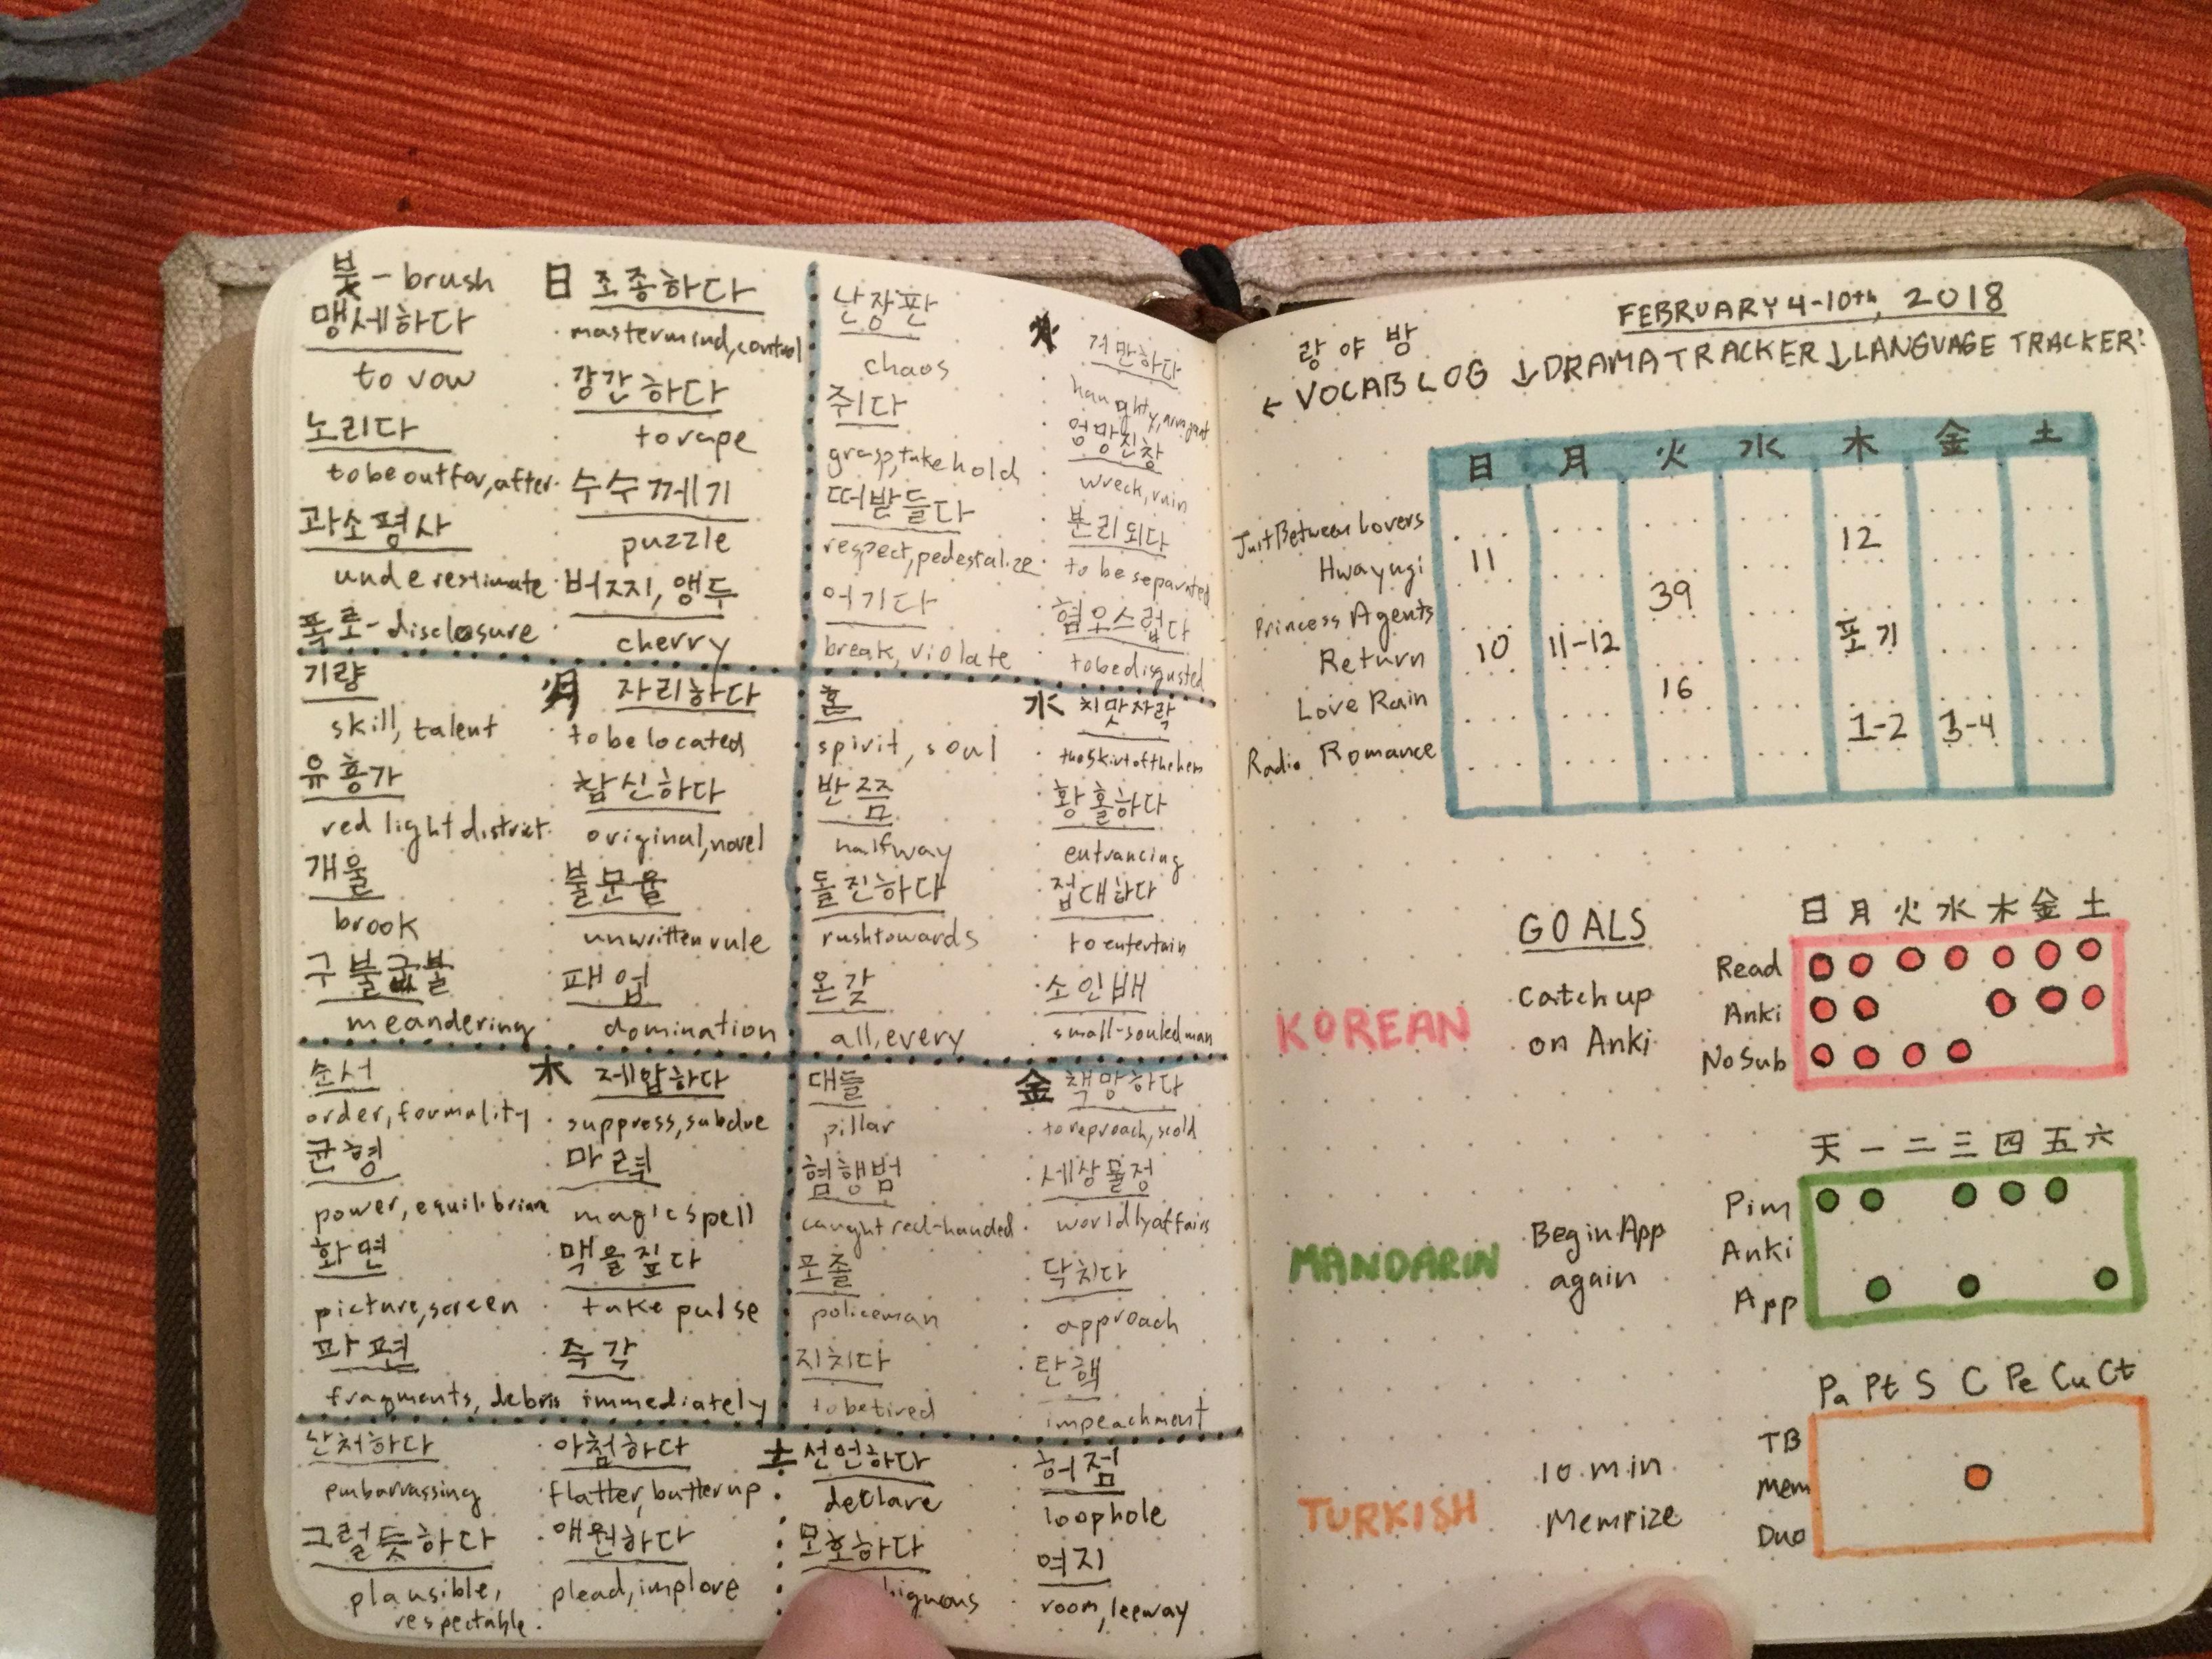 붓 - brush
맹세하다
to vow
노리다
to be out for, after
과소평사
underestimate
폭로 - disclosure
日 조종하다
mastermind, control
강간하다
to rape
수수께기
puzzle
버찌, 앵두
cherry
난장판
chaos
쥐다
grasp, take hold
떠받들다
respect, pedestalize
어기다
break, violate
火
거만하다
haughty, arrogant
엄망진창
wreck, ruin
분리되다
to be separated
혐오스럽다
to be disgusted
기량
skill, talent
유흥가
red light district
개울
brook
구불굽불
meandering
月 자리하다
to be located
참신하다
original, novel
불문율
unwritten rule
패업
domination
혼
spirit, soul
반쯤
halfway
돌진하다
rush towards
온갖
all, every
水 치맛자락
the skirt of the hem
황홀하다
entrancing
접대하다
to entertain
소인배
small-souled man
순서
order, formality
균형
power, equilibrium
화면
picture, screen
파편
fragments, debris
木 제압하다
suppress, subdue
마력
magic spell
맥을 짚다
take pulse
즉각
immediately
대들
pillar
혐행범
caught red-handed
포졸
policeman
지치다
to be tired
金 책망하다
to reproach, scold
세상물정
worldly affairs
닥치다
approach
탄핵
impeachment
난처하다
embarrassing
그럴듯하다
plausible,
respectable
아첨하다
flatter, butter up
애원하다
plead, implore
土 선언하다
declare
모호하다
허점
loophole
여지
room, leeway
FEBRUARY 4-10th, 2018
랑야방
← VOCAB LOG ↓ DRAMA TRACKER ↓ LANGUAGE TRACKER:
日 月 火 水 木 金 土
Just Between Lovers 12
Hwayugi 11
Princess Agents 39
Return 10 11-12 포기
Love Rain 16
Radio Romance 1-2 3-4
GOALS
日 月 火 水 木 金 土
KOREAN
Catch up
on Anki
Read
Anki
No Sub
天 一 二 三 四 五 六
MANDARIN
Begin App
again
Pim
Anki
App
Pa Pt S C Pe Cu Ct
TURKISH
10 min
Memrize
TB
Mem
Duo